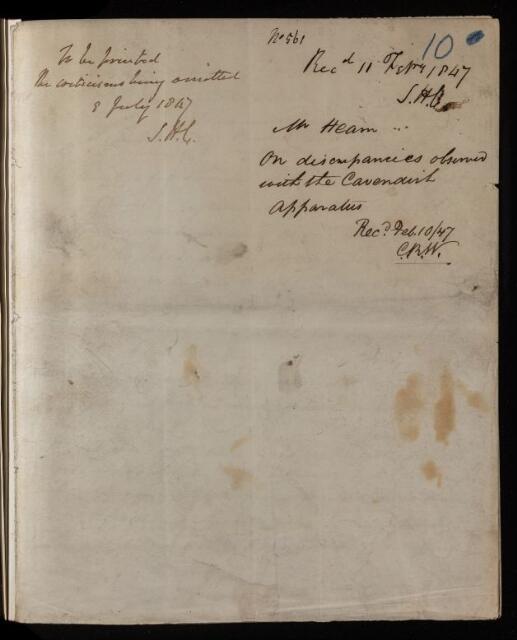 To be printed
the criticisms being omitted
8 July 1847
S.H.C.
No 561
10
Recd 11 Feby 1847
S.H.C.
Mr Hearn
On discrepancies observed
with the Cavendish
Apparatus
Recd. Feb. 10/47
C.R.W.